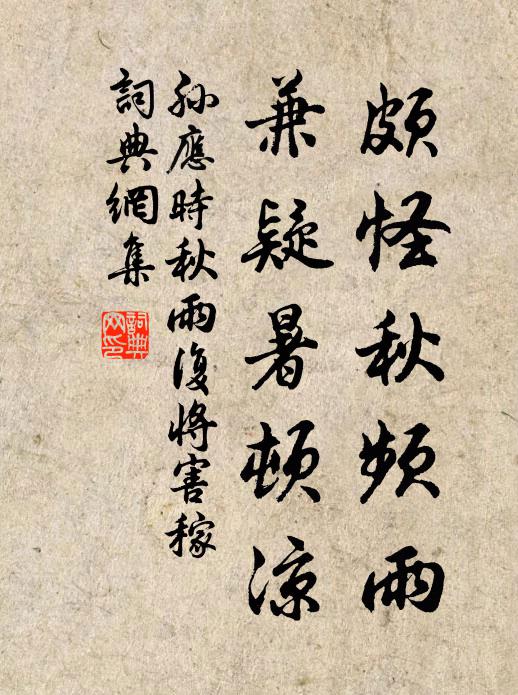 頗怪秋頻雨
兼疑暑頓涼
孫應時秋雨復將害稼
詞典網集
詞典
网印